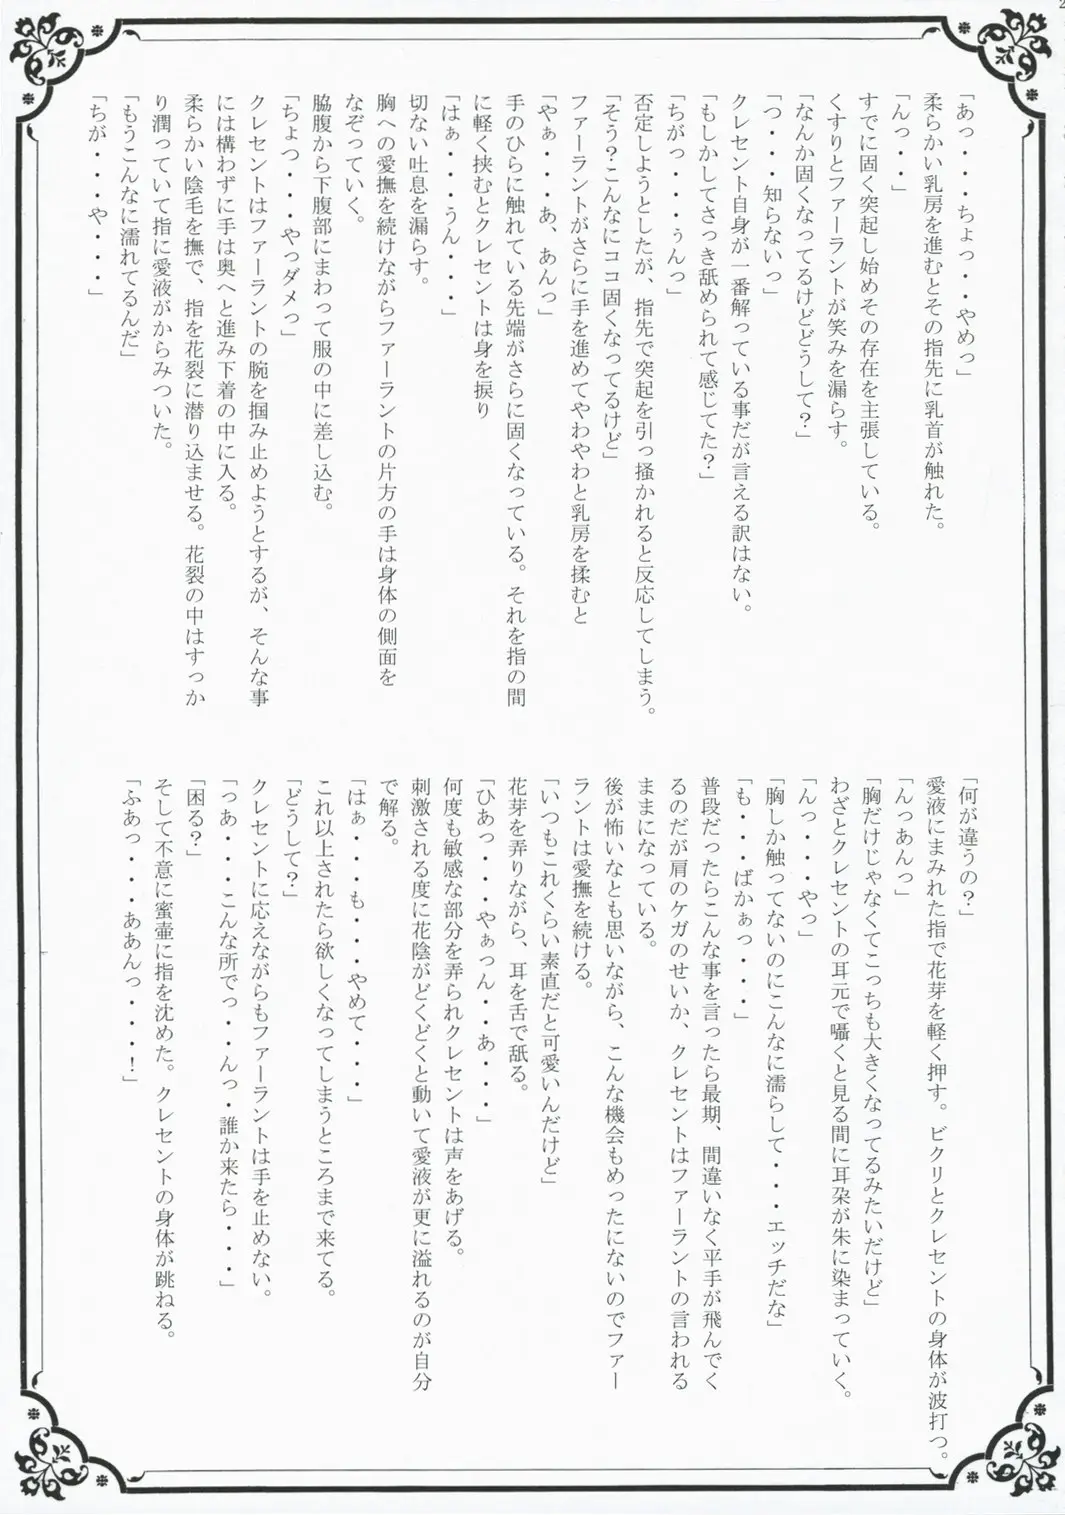 「あっ・・・ちょっ・・やめっ」
柔らかい乳房を進むとその指先に乳首が触れた。
「んっ・・」
すでに固く突起し始めその存在を主張している。
くすりとファーラントが笑みを漏らす。
「なんか固くなってるけどどうして?」
「つ・・・知らないっ」
クレセント自身が一番解っている事だが言える訳はない。
「もしかしてさっき舐められて感じてた?」
「ちがっ・・・ぅんっ」
否定しようとしたが、指先で突起を引っ掻かれると反応してしまう。
「そう?こんなにココ固くなってるけど」
ファーラントがさらに手を進めてやわやわと乳房を揉むと
「やぁ・・・あ、あんっ」
手のひらに触れている先端がさらに固くなっている。それを指の間
に軽く挟むとクレセントは身を捩り
「はぁ・・・うん・・・」
切ない吐息を漏らす。
胸への愛撫を続けながらファーラントの片方の手は身体の側面を
なぞっていく。
脇腹から下腹部にまわって服の中に差し込む。
「ちょっ・・・やっダメっ」
クレセントはファーラントの腕を掴み止めようとするが、そんな事
には構わずに手は奥へと進み下着の中に入る。
柔らかい陰毛を撫で、指を花裂に潜り込ませる。花裂の中はすっか
り潤っていて指に愛液がからみついた。
「もうこんなに濡れてるんだ」
「ちが・・・や・・・」
「何が違うの?」
愛液にまみれた指で花芽を軽く押す。ビクリとクレセントの身体が波打つ。
「んっあんっ」
「胸だけじゃなくてこっちも大きくなってるみたいだけど」
わざとクレセントの耳元で囁くと見る間に耳朶が朱に染まっていく。
「んっ・・・やっ」
「胸しか触ってないのにこんなに濡らして・・・エッチだな」
「も・・・ばかぁっ・・・」
普段だったらこんな事を言ったら最期、間違いなく平手が飛んでく
るのだが肩のケガのせいか、クレセントはファーラントの言われる
ままになっている。
後が怖いなとも思いながら、こんな機会もめったにないのでファー
ラントは愛撫を続ける。
「いつもこれくらい素直だと可愛いんだけど」
花芽を弄りながら、耳を舌で舐る。
「ひあっ・・・やぁっん・・あ・・・」
何度も敏感な部分を弄られクレセントは声をあげる。
刺激される度に花陰がどくどくと動いて愛液が更に溢れるのが自分
で解る。
「はぁ・・・も・・・やめて・・・」
これ以上されたら欲しくなってしまうところまで来てる。
「どうして?」
クレセントに応えながらもファーラントは手を止めない。
「っあ・・・こんな所でっ・・んっ・誰か来たら・・・」
「困る?」
そして不意に蜜壷に指を沈めた。クレセントの身体が跳ねる。
「ふあっ・・・ああんっ・・・!」